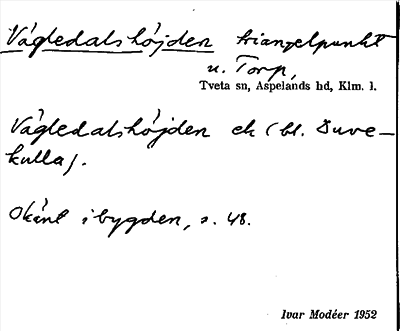 Vågledalshöjden triangelpunkt
u. Torp,
Tveta sn, Aspelands hd, Klm. l.
Vågledalshöjden ek (bl. Duve-
kulla).
Okänt i bygden, s. 48.
Ivar Modéer 1952